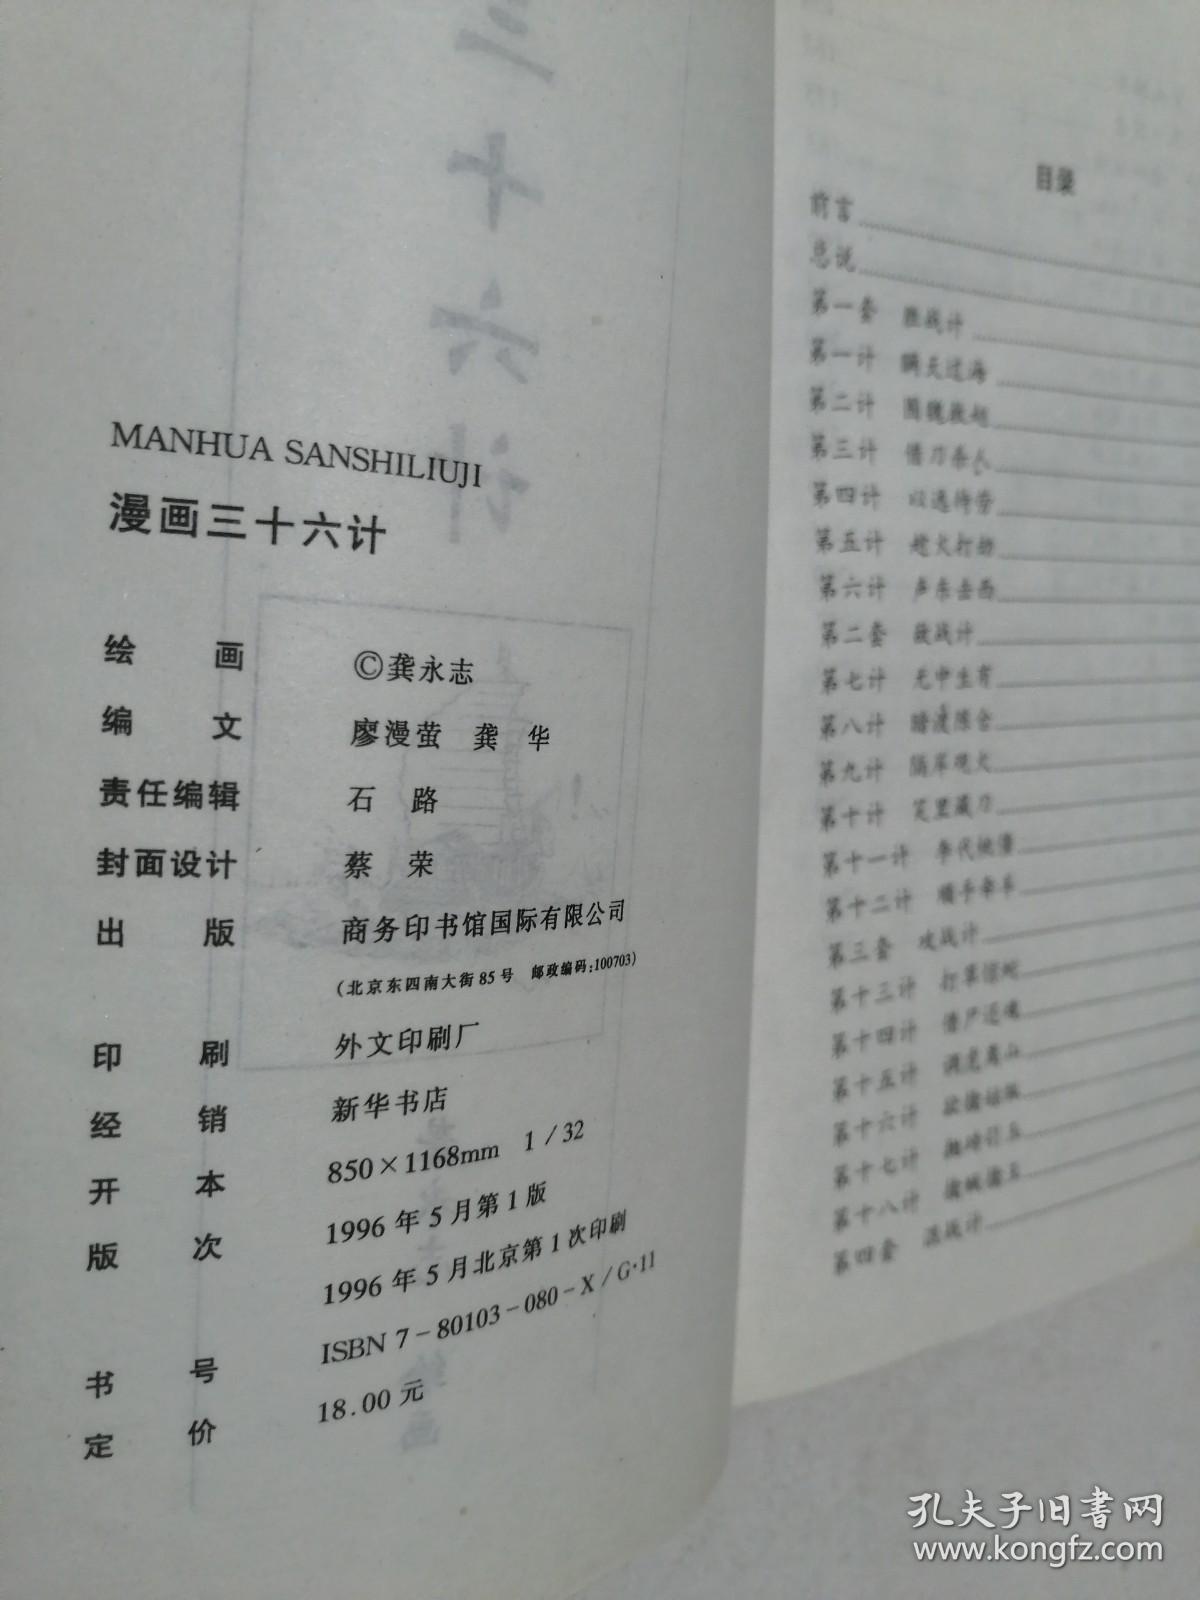 三十六计
MANHUA SANSHILIUJI
漫画三十六计
绘画 ©龚永志
编文 廖漫萤 龚华
责任编辑 石路
封面设计 蔡荣
出版 商务印书馆国际有限公司
(北京东四南大街85号 邮政编码:100703)
印刷 外文印刷厂
经销 新华书店
开本 850×1168mm 1/32
版次 1996年5月第1版
1996年5月北京第1次印刷
书号 ISBN 7-80103-080-X/G·11
定价 18.00元
目录
前言
总说
第一套 胜战计
第一计 瞒天过海
第二计 围魏救赵
第三计 借刀杀人
第四计 以逸待劳
第五计 趁火打劫
第六计 声东击西
第二套 敌战计
第七计 无中生有
第八计 暗渡陈仓
第九计 隔岸观火
第十计 笑里藏刀
第十一计 李代桃僵
第十二计 顺手牵羊
第三套 攻战计
第十三计 打草惊蛇
第十四计 借尸还魂
第十五计 调虎离山
第十六计 欲擒姑纵
第十七计 抛砖引玉
第十八计 擒贼擒王
第四套 混战计
孔夫子旧书网
www.kongfz.com